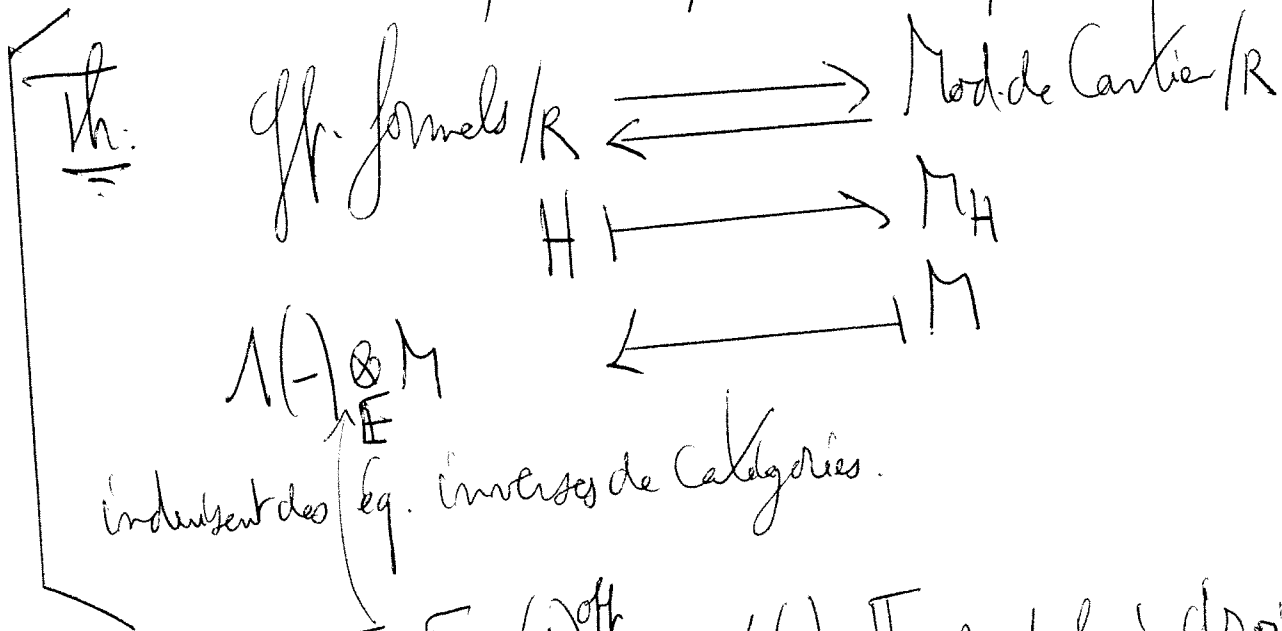 Th. Gp. formels/R ⇄ Mod. de Cartier/R
H ↦ M_H
Λ(-) ⊗_𝔼 M ↤ M
induisent des éq. inverses de catégories.